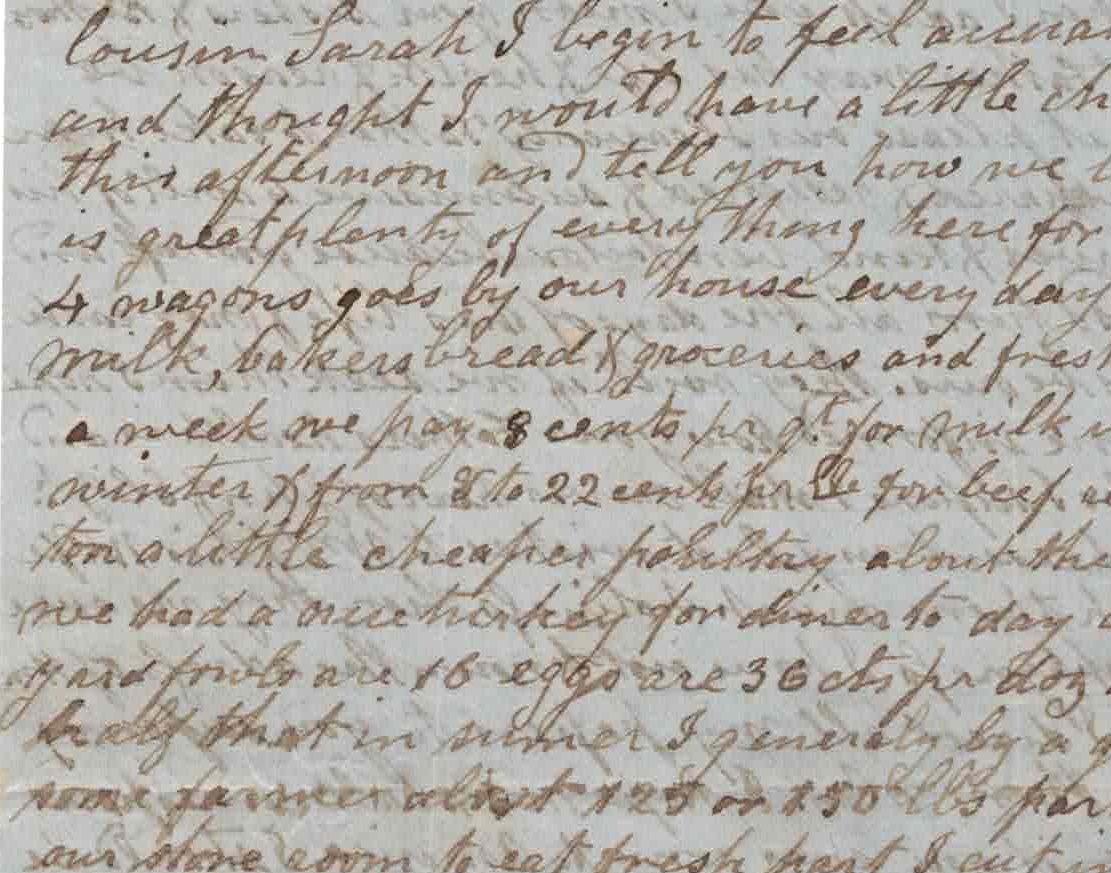 cousin Sarah I begin to feel
and thought I would have a little
this afternoon and tell you how we
is great plenty of every thing here for
4 wagons goes by our house every day
milk, bakers bread & groceries and
a week we pay 8 cents pr qt for milk
winter & from 8 to 22 cents pr lb for beef
ton a little cheaper poultry about the
we had a nice turkey for diner to day
yard fowls are 16 eggs are 36 cts pr doz
half that in sumer I generaly by a
some farmer about 125 or 150 lbs
our store room to eat fresh part I cut